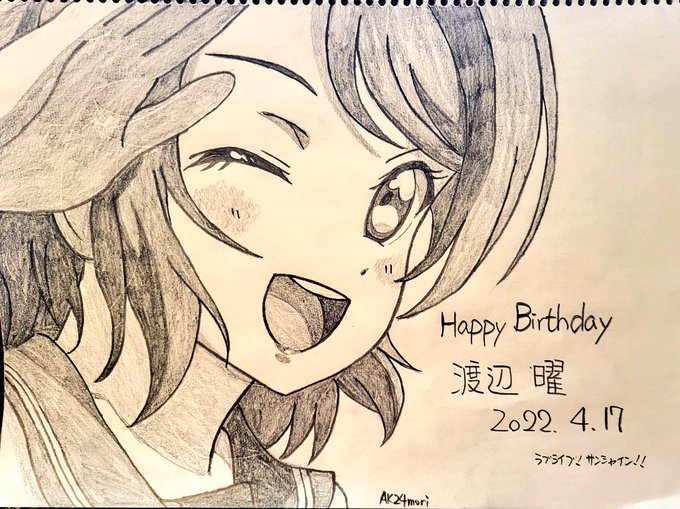 Happy Birthday
渡辺 曜
2022. 4. 17
ラブライブ! サンシャイン!!
AK24mori